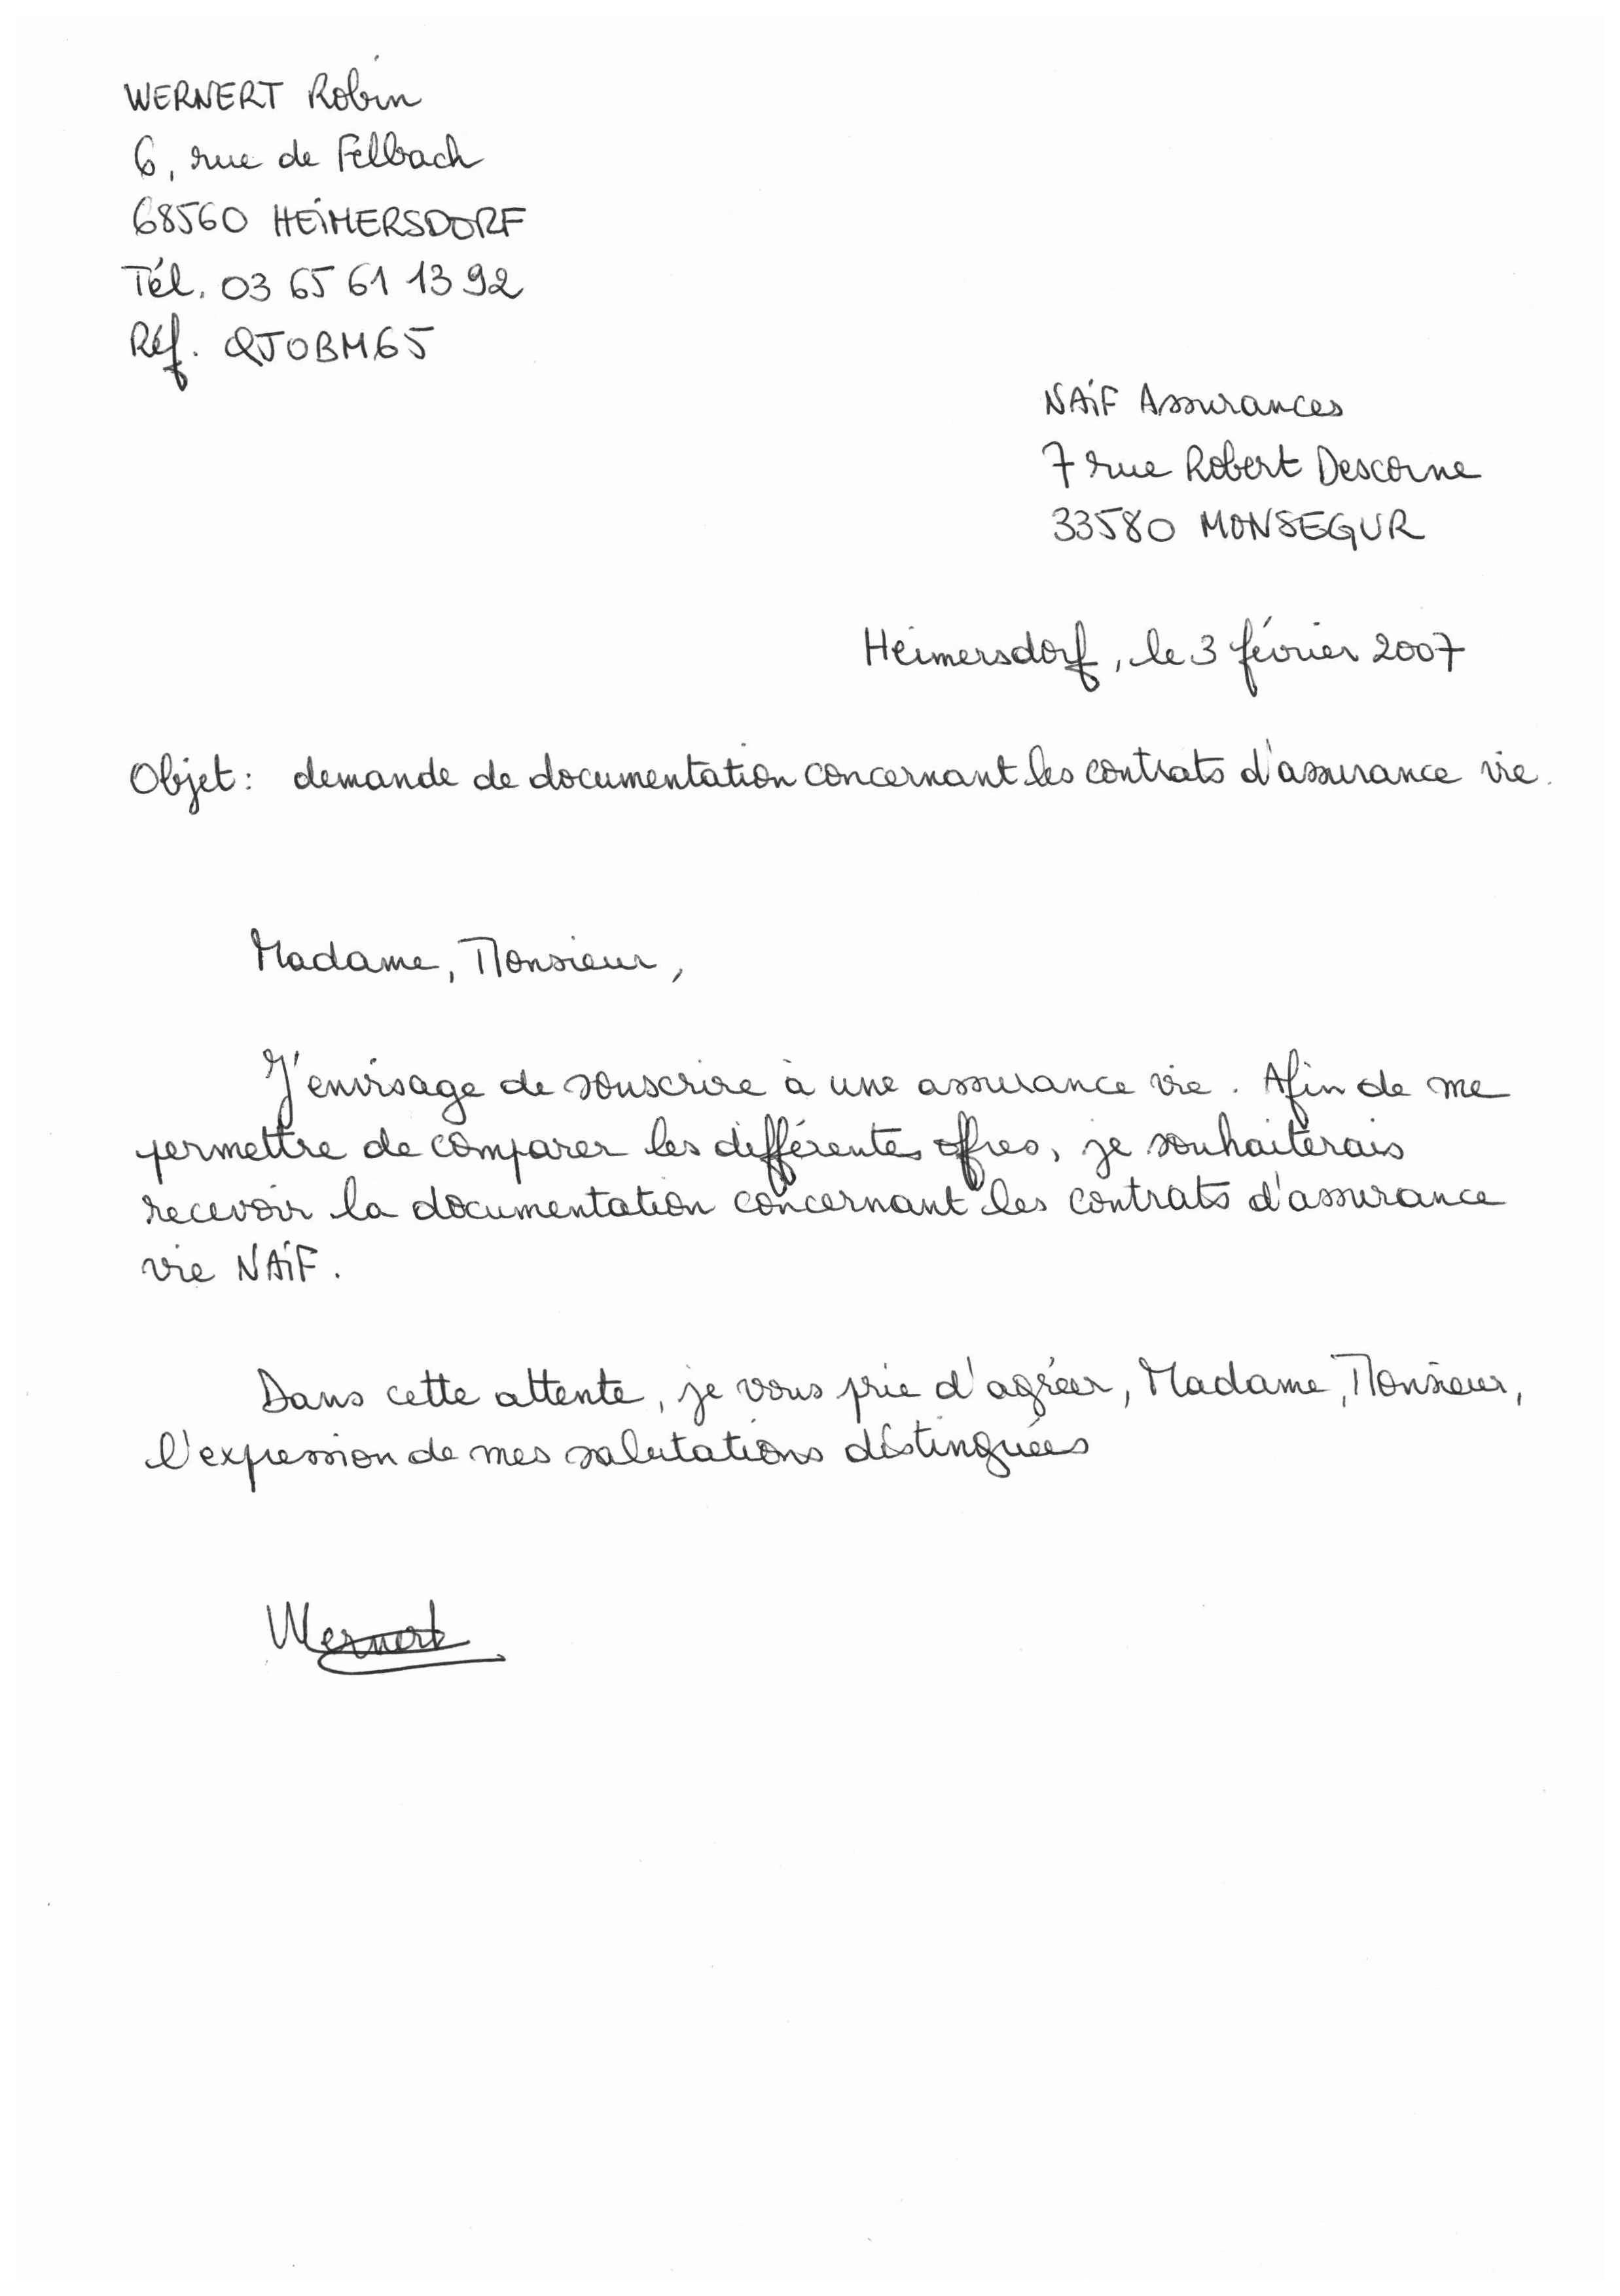 WERNERT Robin
6, rue de Felbach
68560 HEIMERSDORF
Tél. 03 65 61 13 92
Réf. QJOBM65
NAIF Assurances
7 rue Robert Descorne
33580 MONSEGUR
Heimersdorf, le 3 février 2007
Objet : demande de documentation concernant les contrats d'assurance vie.
Madame, Monsieur,
J'envisage de souscrire à une assurance vie. Afin de me
permettre de comparer les différentes offres, je souhaiterais
recevoir la documentation concernant les contrats d'assurance
vie NAIF.
Dans cette attente, je vous prie d'agréer, Madame, Monsieur,
l'expression de mes salutations distinguées
Wernert